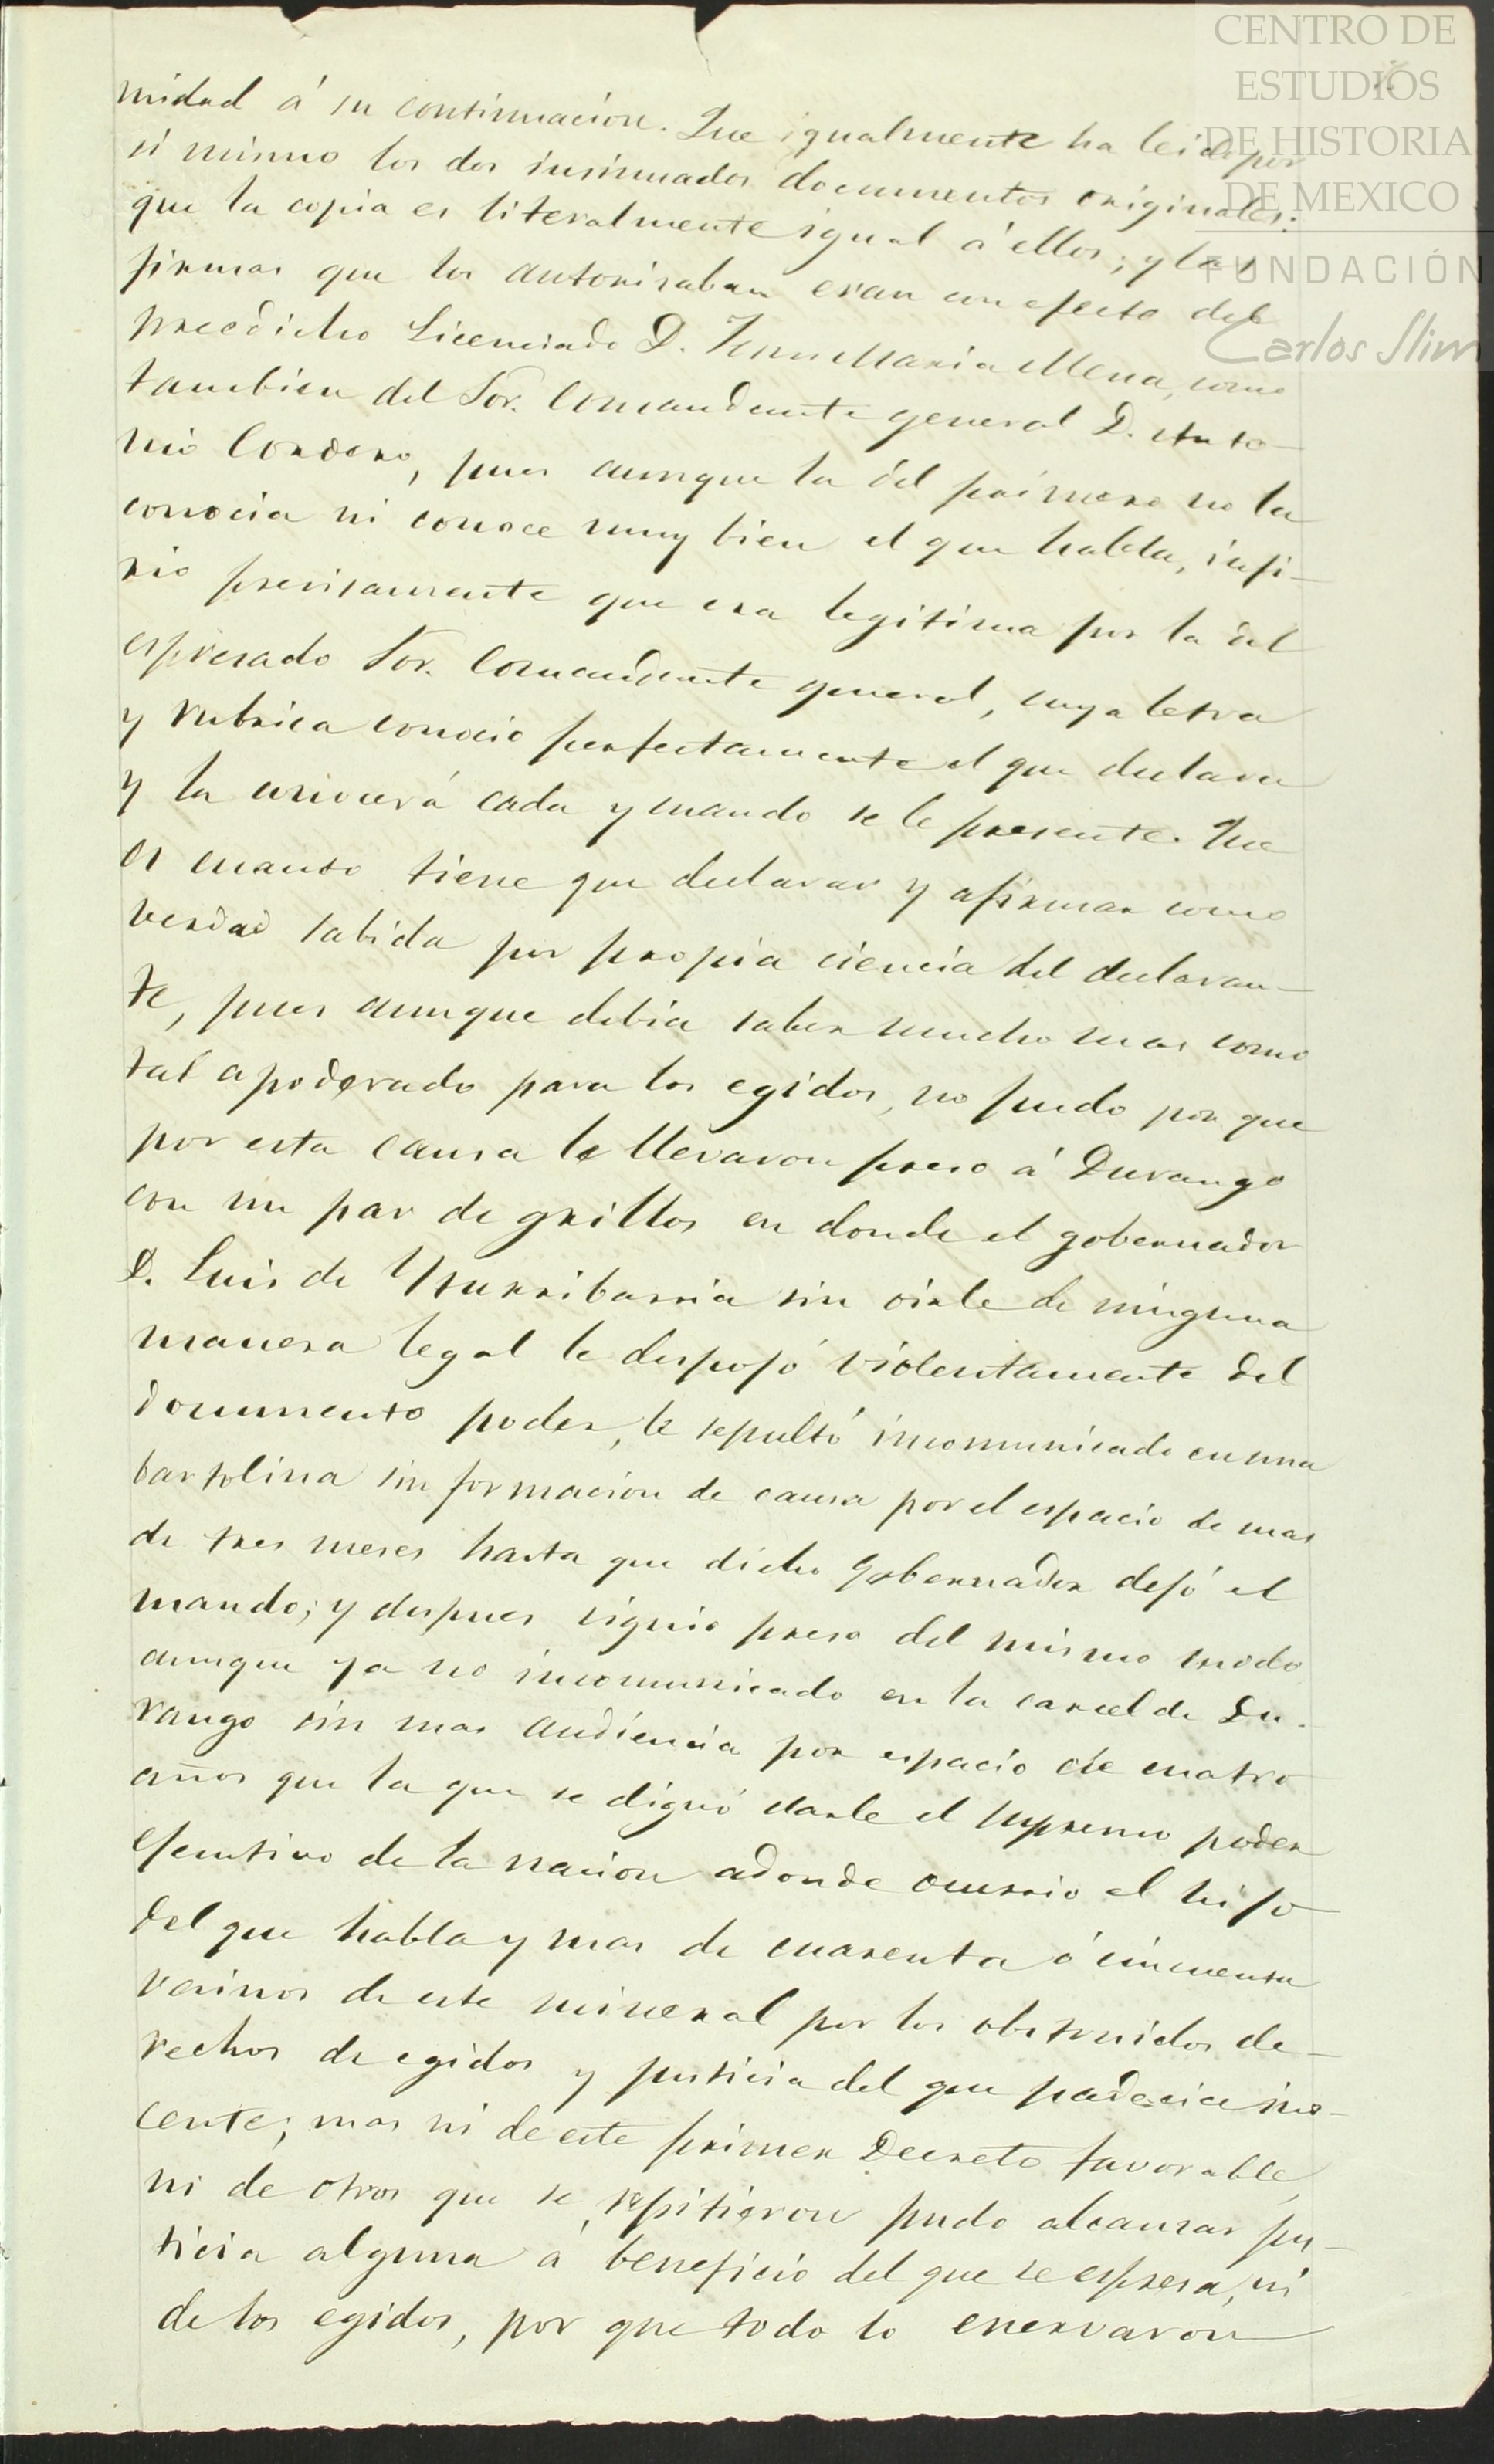 CENTRO DE
ESTUDIOS
DE HISTORIA
DE MEXICO
FUNDACIÓN
Carlos Slim
nidad á su continuacion. Que igualmente ha leido por
si mismo los dos insinuados documentos originales:
que la copia es literalmente igual á ellos; y las
firmas que los autorisaban eran con efecto del
predicho Licenciado D. Maria Mena, como
tambien del Sor. Comandante general D. Anto-
nio Cordero, pues aunque la del primero no la
conocia ni conoce muy bien el que habla, infi-
rio precisamente que era legitima por la del
espresado Sor. Comandante general, cuya letra
y rubrica conocio perfectamente el que declara
y la conocerá cada y cuando se le presente. Que
es cuanto tiene que declarar y afirmar como
verdad sabida por propia ciencia del declaran-
te, pues aunque debia saber mucho mas como
tal apoderado para los egidos, no pudo por que
por esta causa le llevaron preso á Durango
con un par de grillos en donde el gobernador
D. Luis de Ysurribarria sin oirle de ninguna
manera legal le despojó violentamente del
documento poder, le sepultó incomunicado en una
bartolina sin formacion de causa por el espacio de mas
de tres meses hasta que dicho gobernador dejó el
mando; y despues siguio preso del mismo modo
aunque ya no incomunicado en la carcel de Du-
rango sin mas audiencia por espacio de cuatro
años que la que se dignó darle el supremo poder
ejecutivo de la nacion adonde ocurrio el hijo
del que habla y mas de cuarenta ó cincuenta
vecinos de este mineral por los obstruidos de-
rechos de egidos y justicia del que padecia ino-
cente; mas ni de este primer Decreto favorable,
ni de otros que se repitieron pudo alcanzar jus-
ticia alguna á beneficio del que se espresa, ni
de los egidos, por que todo lo enervaron